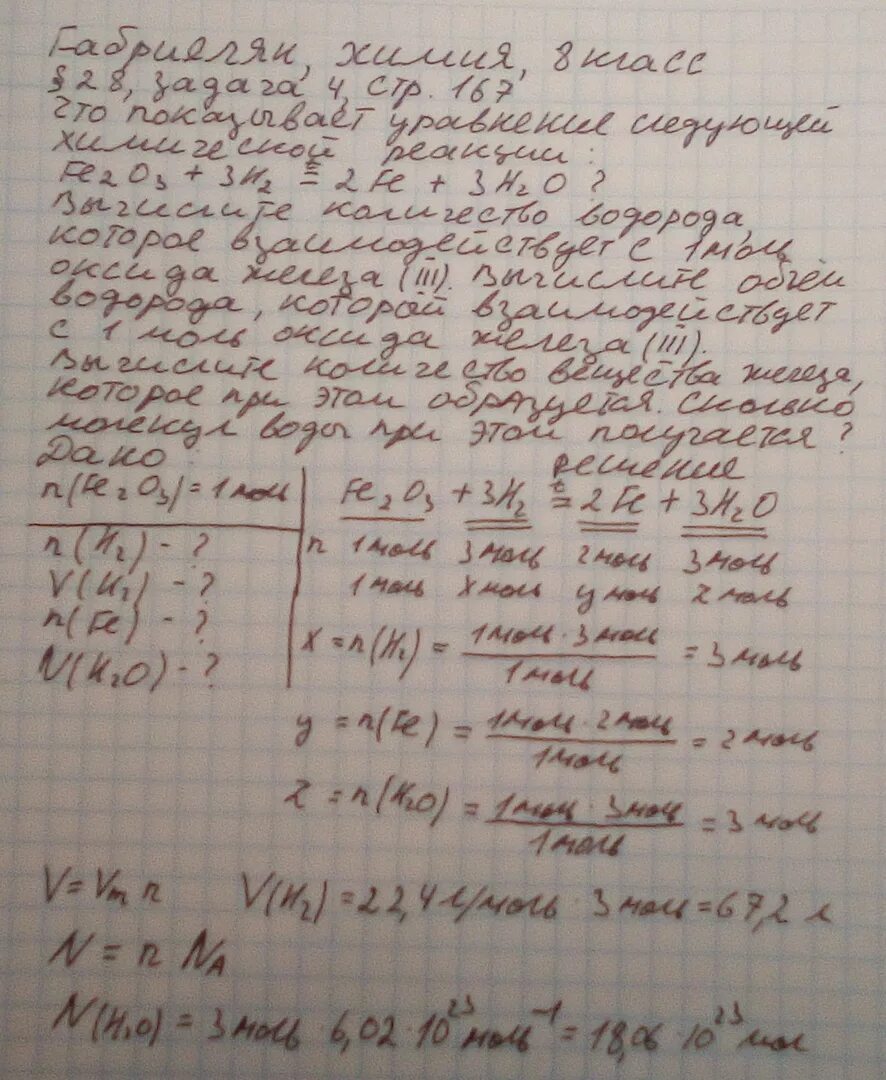 Габриелян, химия, 8 класс
§ 28, задача 4, стр. 167
Что показывает уравнение следующей
химической реакции:
Fe₂O₃ + 3H₂ t= 2Fe + 3H₂O ?
Вычислите количество водорода,
которое взаимодействует с 1 моль
оксида железа (III). Вычислите объём
водорода, который взаимодействует
с 1 моль оксида железа (III).
Вычислите количество вещества железа,
которое при этом образуется. Сколько
молекул воды при этом получается?
Дано: Решение
n(Fe₂O₃) = 1 моль Fe₂O₃ + 3H₂ t= 2Fe + 3H₂O
n(H₂) - ? n 1 моль 3 моль 2 моль 3 моль
V(H₂) - ? 1 моль x моль y моль z моль
n(Fe) - ?
x = n(H₂) = 1 моль · 3 моль / 1 моль = 3 моль
N(H₂O) - ?
y = n(Fe) = 1 моль · 2 моль / 1 моль = 2 моль
z = n(H₂O) = 1 моль · 3 моль / 1 моль = 3 моль
V = Vm n V(H₂) = 22,4 л/моль · 3 моль = 67,2 л
N = n NA
N(H₂O) = 3 моль · 6,02 · 10²³ моль⁻¹ = 18,06 · 10²³ мол